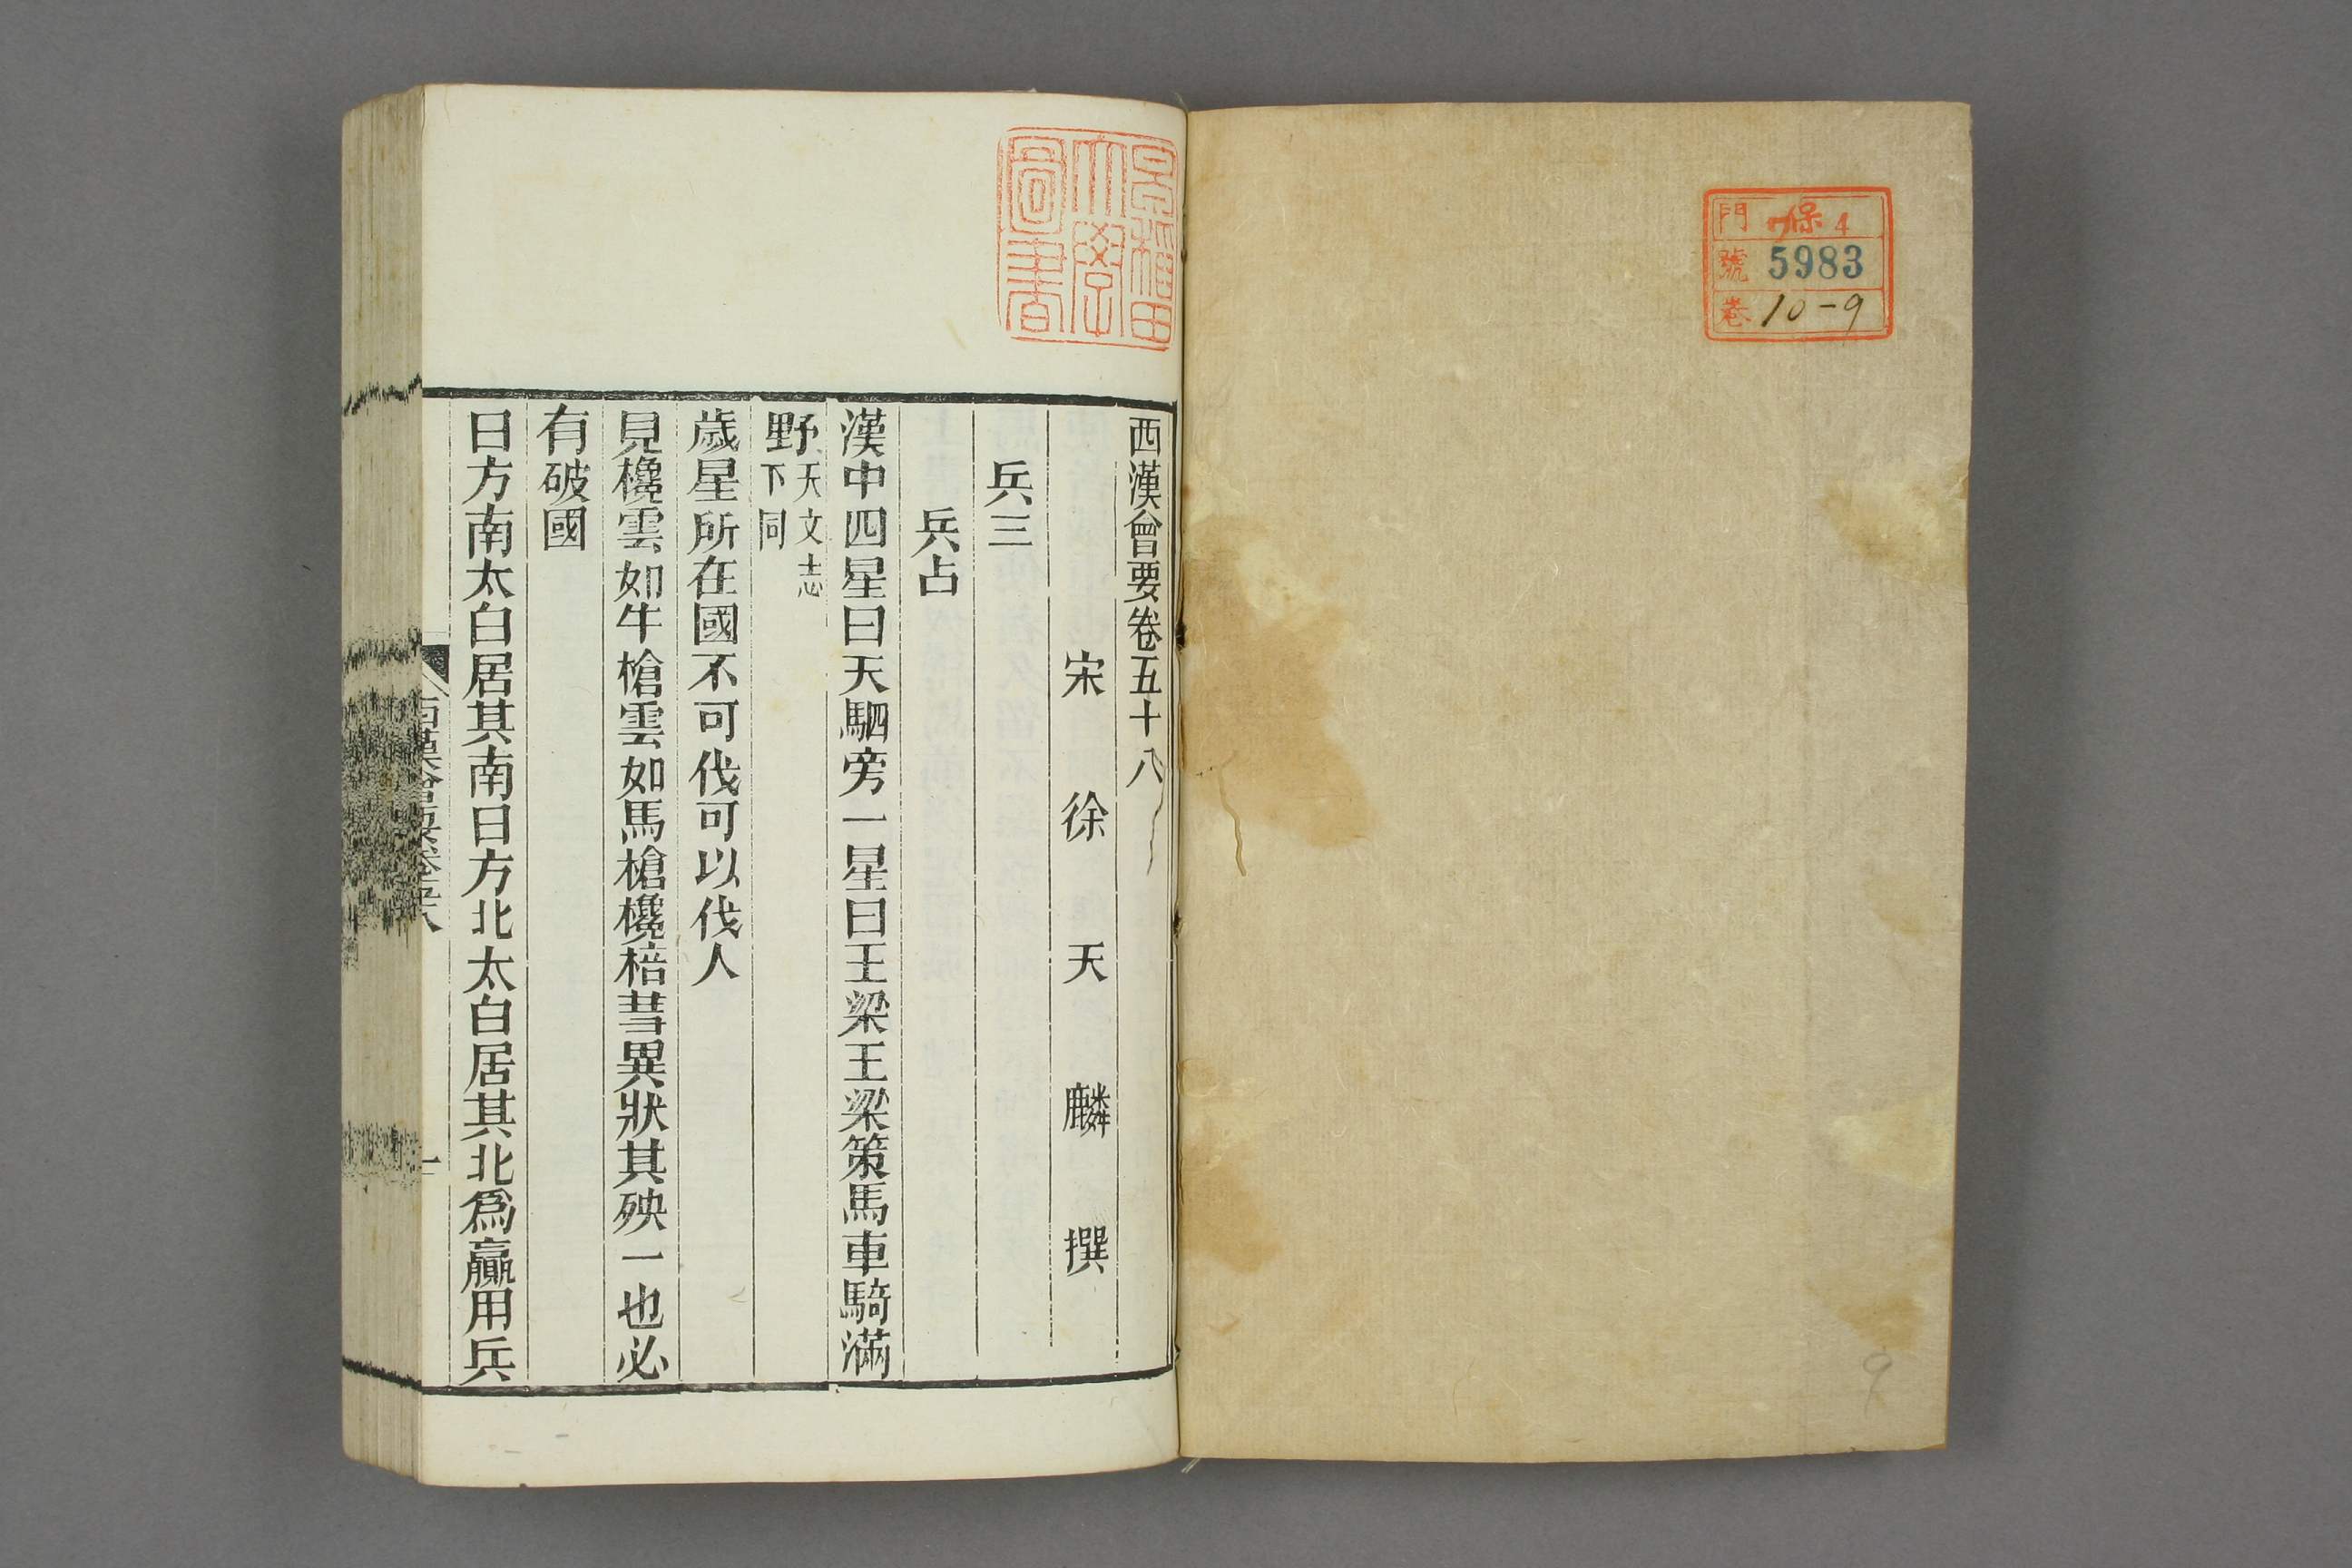 門 ワ保 4
號 5983
卷 10-9
9
早稲田
大學
圖書
西漢會要卷五十八
宋徐天麟撰
兵三
兵占
漢中四星曰天駟旁一星曰王梁王梁策馬車騎滿
野天文志下同
歲星所在國不可伐可以伐人
見欃雲如牛槍雲如馬槍欃棓彗異狀其殃一也必
有破國
日方南太白居其南日方北太白居其北爲贏用兵
西漢會要卷五十八
一